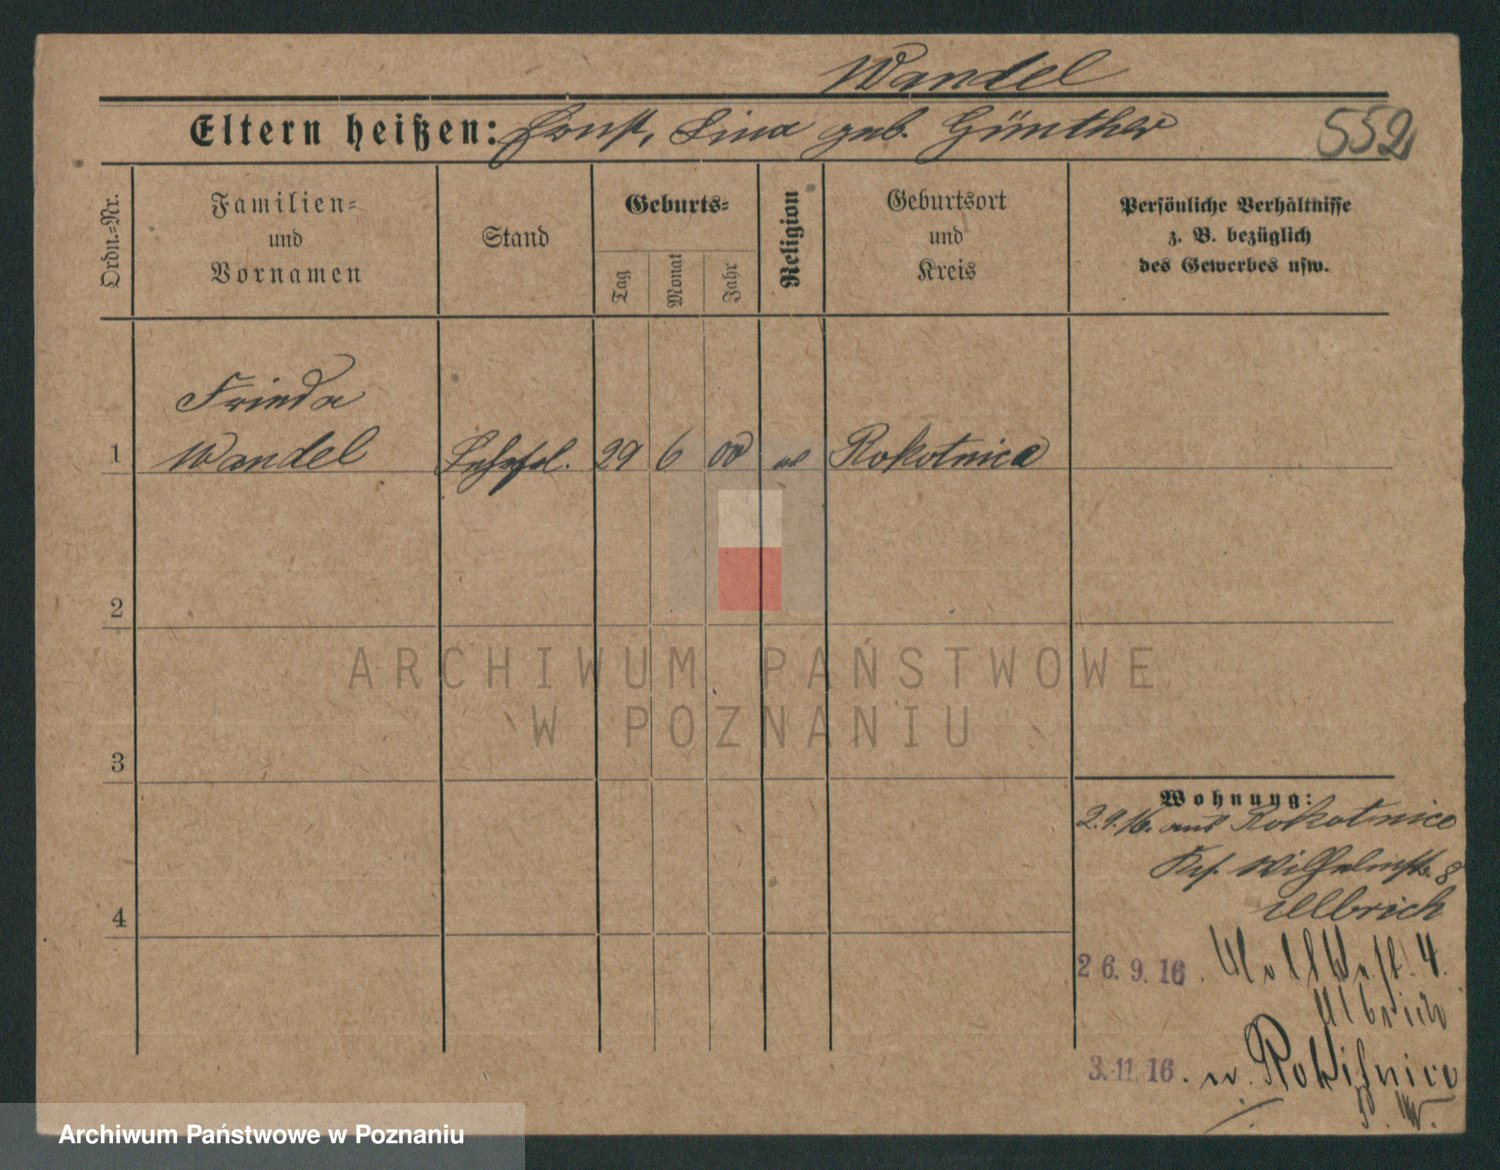 Wandel
Eltern heißen: Ernst, Lina geb. Günther
552
Ordn.-Nr.
Familien-
und
Vornamen
Stand
Geburts-
Tag
Monat
Jahr
Religion
Geburtsort
und
Kreis
Persönliche Verhältnisse
z. B. bezüglich
des Gewerbes usw.
Frieda
1 Wandel 29 6 00 Rokotnica
2
ARCHIWUM PAŃSTWOWE
W POZNANIU
3
Wohnung:
2.9.16. aus Rokotnica
Wilhelmstr. 8
Ulbrich
4
26.9.16. 4.
Ulbrich
3.11.16. n. Rokitnica
Archiwum Państwowe w Poznaniu